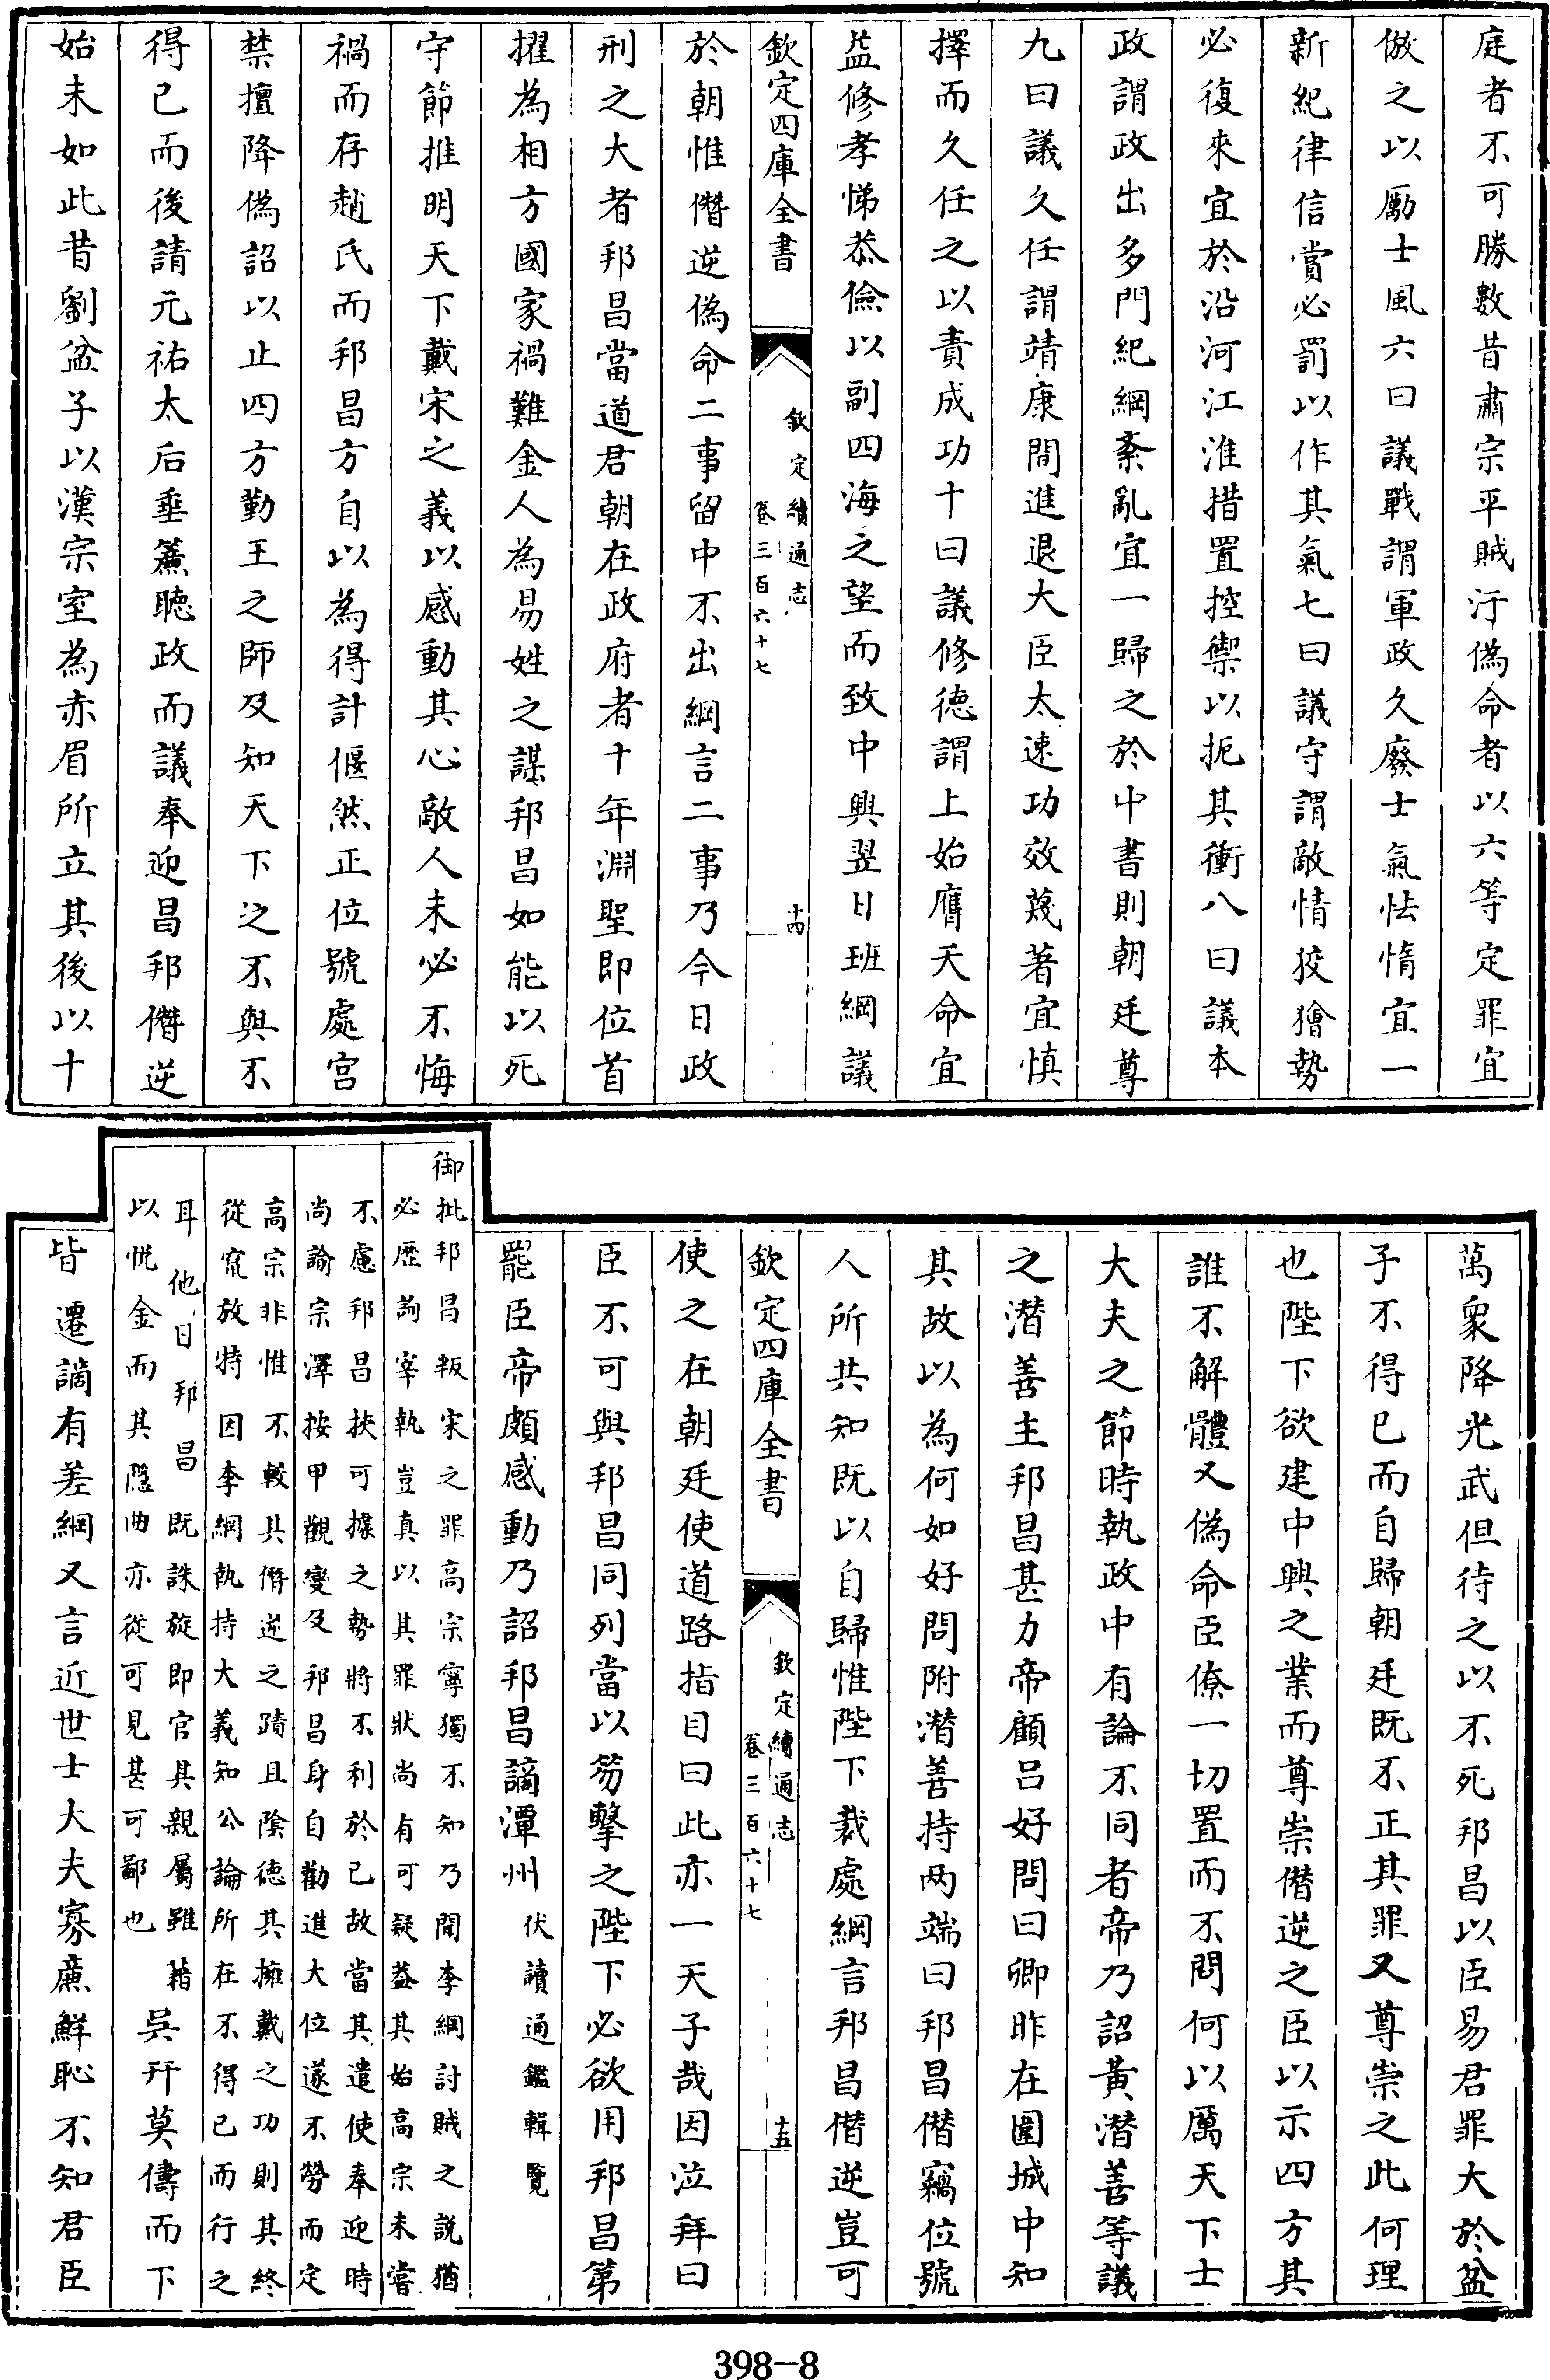 庭者不可勝數昔肅宗平賊汙偽命者以六等定罪宜
倣之以厲士風六曰議戰謂軍政久廢士氣怯惰宜一
新紀律信賞必罰以作其氣七曰議守謂敵情狡獪勢
必復來宜於沿河江淮措置控禦以扼其衝八曰議本
政謂政出多門紀綱紊亂宜一歸之於中書則朝廷尊
九曰議久任謂靖康間進退大臣太速功效蔑著宜慎
擇而久任之以責成功十曰議修德謂上始膺天命宜
益修孝悌恭儉以副四海之望而致中興翌日班綱議
欽定四庫全書
欽定續通志
卷三百六十七
十四
於朝惟僭逆偽命二事留中不出綱言二事乃今日政
刑之大者邦昌當道君朝在政府者十年淵聖即位首
擢為相方國家禍難金人為易姓之謀邦昌如能以死
守節推明天下戴宋之義以感動其心敵人未必不悔
禍而存趙氏而邦昌方自以為得計偃然正位號處宮
禁擅降偽詔以止四方勤王之師及知天下之不與不
得已而後請元祐太后垂簾聽政而議奉迎昌邦僭逆
始末如此昔劉盆子以漢宗室為赤眉所立其後以十
萬衆降光武但待之以不死邦昌以臣易君罪大於盆
子不得已而自歸朝廷既不正其罪又尊崇之此何理
也陛下欲建中興之業而尊崇僭逆之臣以示四方其
誰不解體又偽命臣僚一切置而不問何以厲天下士
大夫之節時執政中有論不同者帝乃詔黃潛善等議
之潛善主邦昌甚力帝顧呂好問曰卿昨在圍城中知
其故以為何如好問附潛善持兩端曰邦昌僭竊位號
人所共知既以自歸惟陛下裁處綱言邦昌僭逆豈可
欽定四庫全書
欽定續通志
卷三百六十七
十五
使之在朝廷使道路指目曰此亦一天子哉因泣拜曰
臣不可與邦昌同列當以笏擊之陛下必欲用邦昌第
罷臣帝頗感動乃詔邦昌謫潭州
伏讀通鑑輯覽
御批邦昌叛宋之罪高宗寧獨不知乃聞李綱討賊之說猶
必歷詢宰執豈真以其罪狀尚有可疑益其始高宗未嘗
不慮邦昌挾可據之勢將不利於已故當其遣使奉迎時
尚諭宗澤按甲觀變及邦昌身自勸進大位遂不勞而定
高宗非惟不較其僭逆之蹟且陰德其擁戴之功則其終
從竄放特因李綱執持大義知公論所在不得已而行之
耳他日邦昌既誅旋即官其親屬雖藉
以悅金而其隱曲亦從可見甚可鄙也
吳幵莫儔而下
皆遷謫有差綱又言近世士大夫寡廉鮮恥不知君臣
398-8